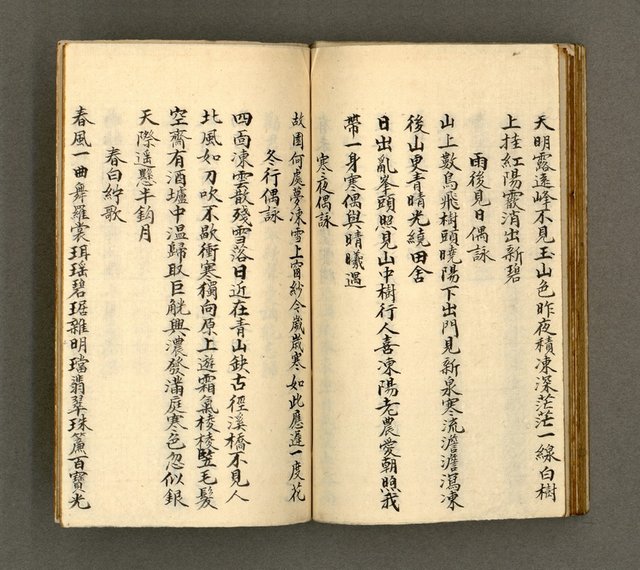 天明露遠峰不見玉山色昨夜積凍深茫茫一線白樹
上挂紅陽霰消出新碧
雨後見日偶詠
山上數鳥飛樹頭曉陽下出門見新泉寒流澹澹瀉凍
後山更青晴光繞田舍
日出亂峯頭照見山中樹行人喜凍陽老農愛朝照我
帶一身寒偶與晴曦遇
寒夜偶詠
故園何處夢凍雪上窗紗今歲歲寒如此應遲一度花
冬行偶詠
四面凍雲散殘雪落日近在青山缺古徑溪橋不見人
北風如刀吹不歇衝寒獨向原上遊霜氣稜稜竪毛髮
空齋有酒壚中溫歸取巨觥興濃發滿庭寒色忽似銀
天際遥懸半鈎月
春白紵歌
春風一曲舞羅裳珥瑶碧琚雜明璫翡翠珠簾百寶光